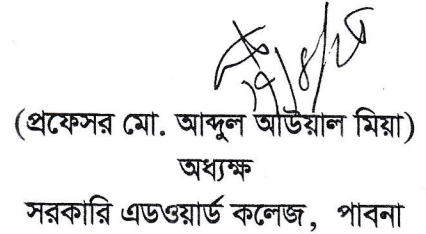 (প্রফেসর মো. আব্দুল আউয়াল মিয়া)
অধ্যক্ষ
সরকারি এডওয়ার্ড কলেজ, পাবনা